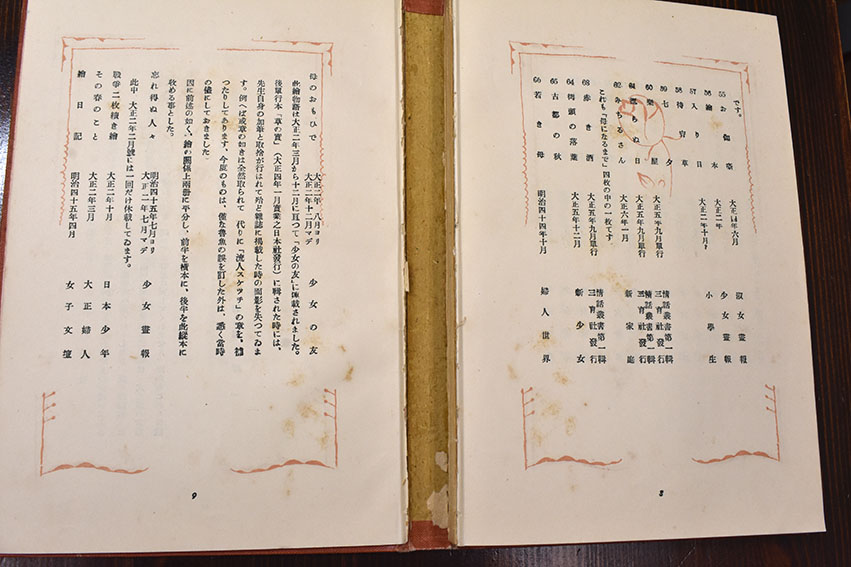 です。
55 お伽 大正四年六月 淑女畫報
56 繪本 大正二年 少女畫報
57 入り日 大正二年十月? 小學生
58 待宵草
59 七夕
60 樂屋 大正五年九月單行 情話叢書第一輯 三育社發行
61 眠られぬ日 大正五年九月單行 情話叢書第一輯 三育社發行
62 みちるさん 大正六年一月 新家庭
これも「母になるまで」四枚の中の一枚です。
63 赤き酒 大正五年九月單行 情話叢書第一輯 三育社發行
64 街頭の落葉 大正五年十二月 新少女
65 古都の秋
66 若き母 明治四十四年十月 婦人世界
8
母のおもひで 大正二年八月ヨリ 大正二年十二月マデ 少女の友
此繪物語は大正二年三月から十二月に亙つて「少女の友」に連載されました。
後單行本「草の實」(大正四年一月實業之日本社發行)に輯された時には、
先生自身の加筆と取捨が行はれて殆ど雜誌に掲載した時の面影を失つてゐま
す。例へば或章の如きは全然取られて 代りに「流人スケツチ」の章を、補
つたりしてあります。今度のものは、僅な魯魚の誤を訂した外は、悉く當時
の儘にしておきました。
因に前述の如く、繪の關係上兩册に平分し、前半を横本に、後半を此縱本に
收める事とした。
忘れ得ぬ人々 明治四十五年七月ヨリ 大正一年七月マデ 少女畫報
此中 大正二年二月號には一回だけ休載してゐます。
戰爭二枚續き繪 大正二年十月 日本少年
その春のこと 大正二年三月 大正婦人
繪日記 明治四十五年四月 女子文壇
9